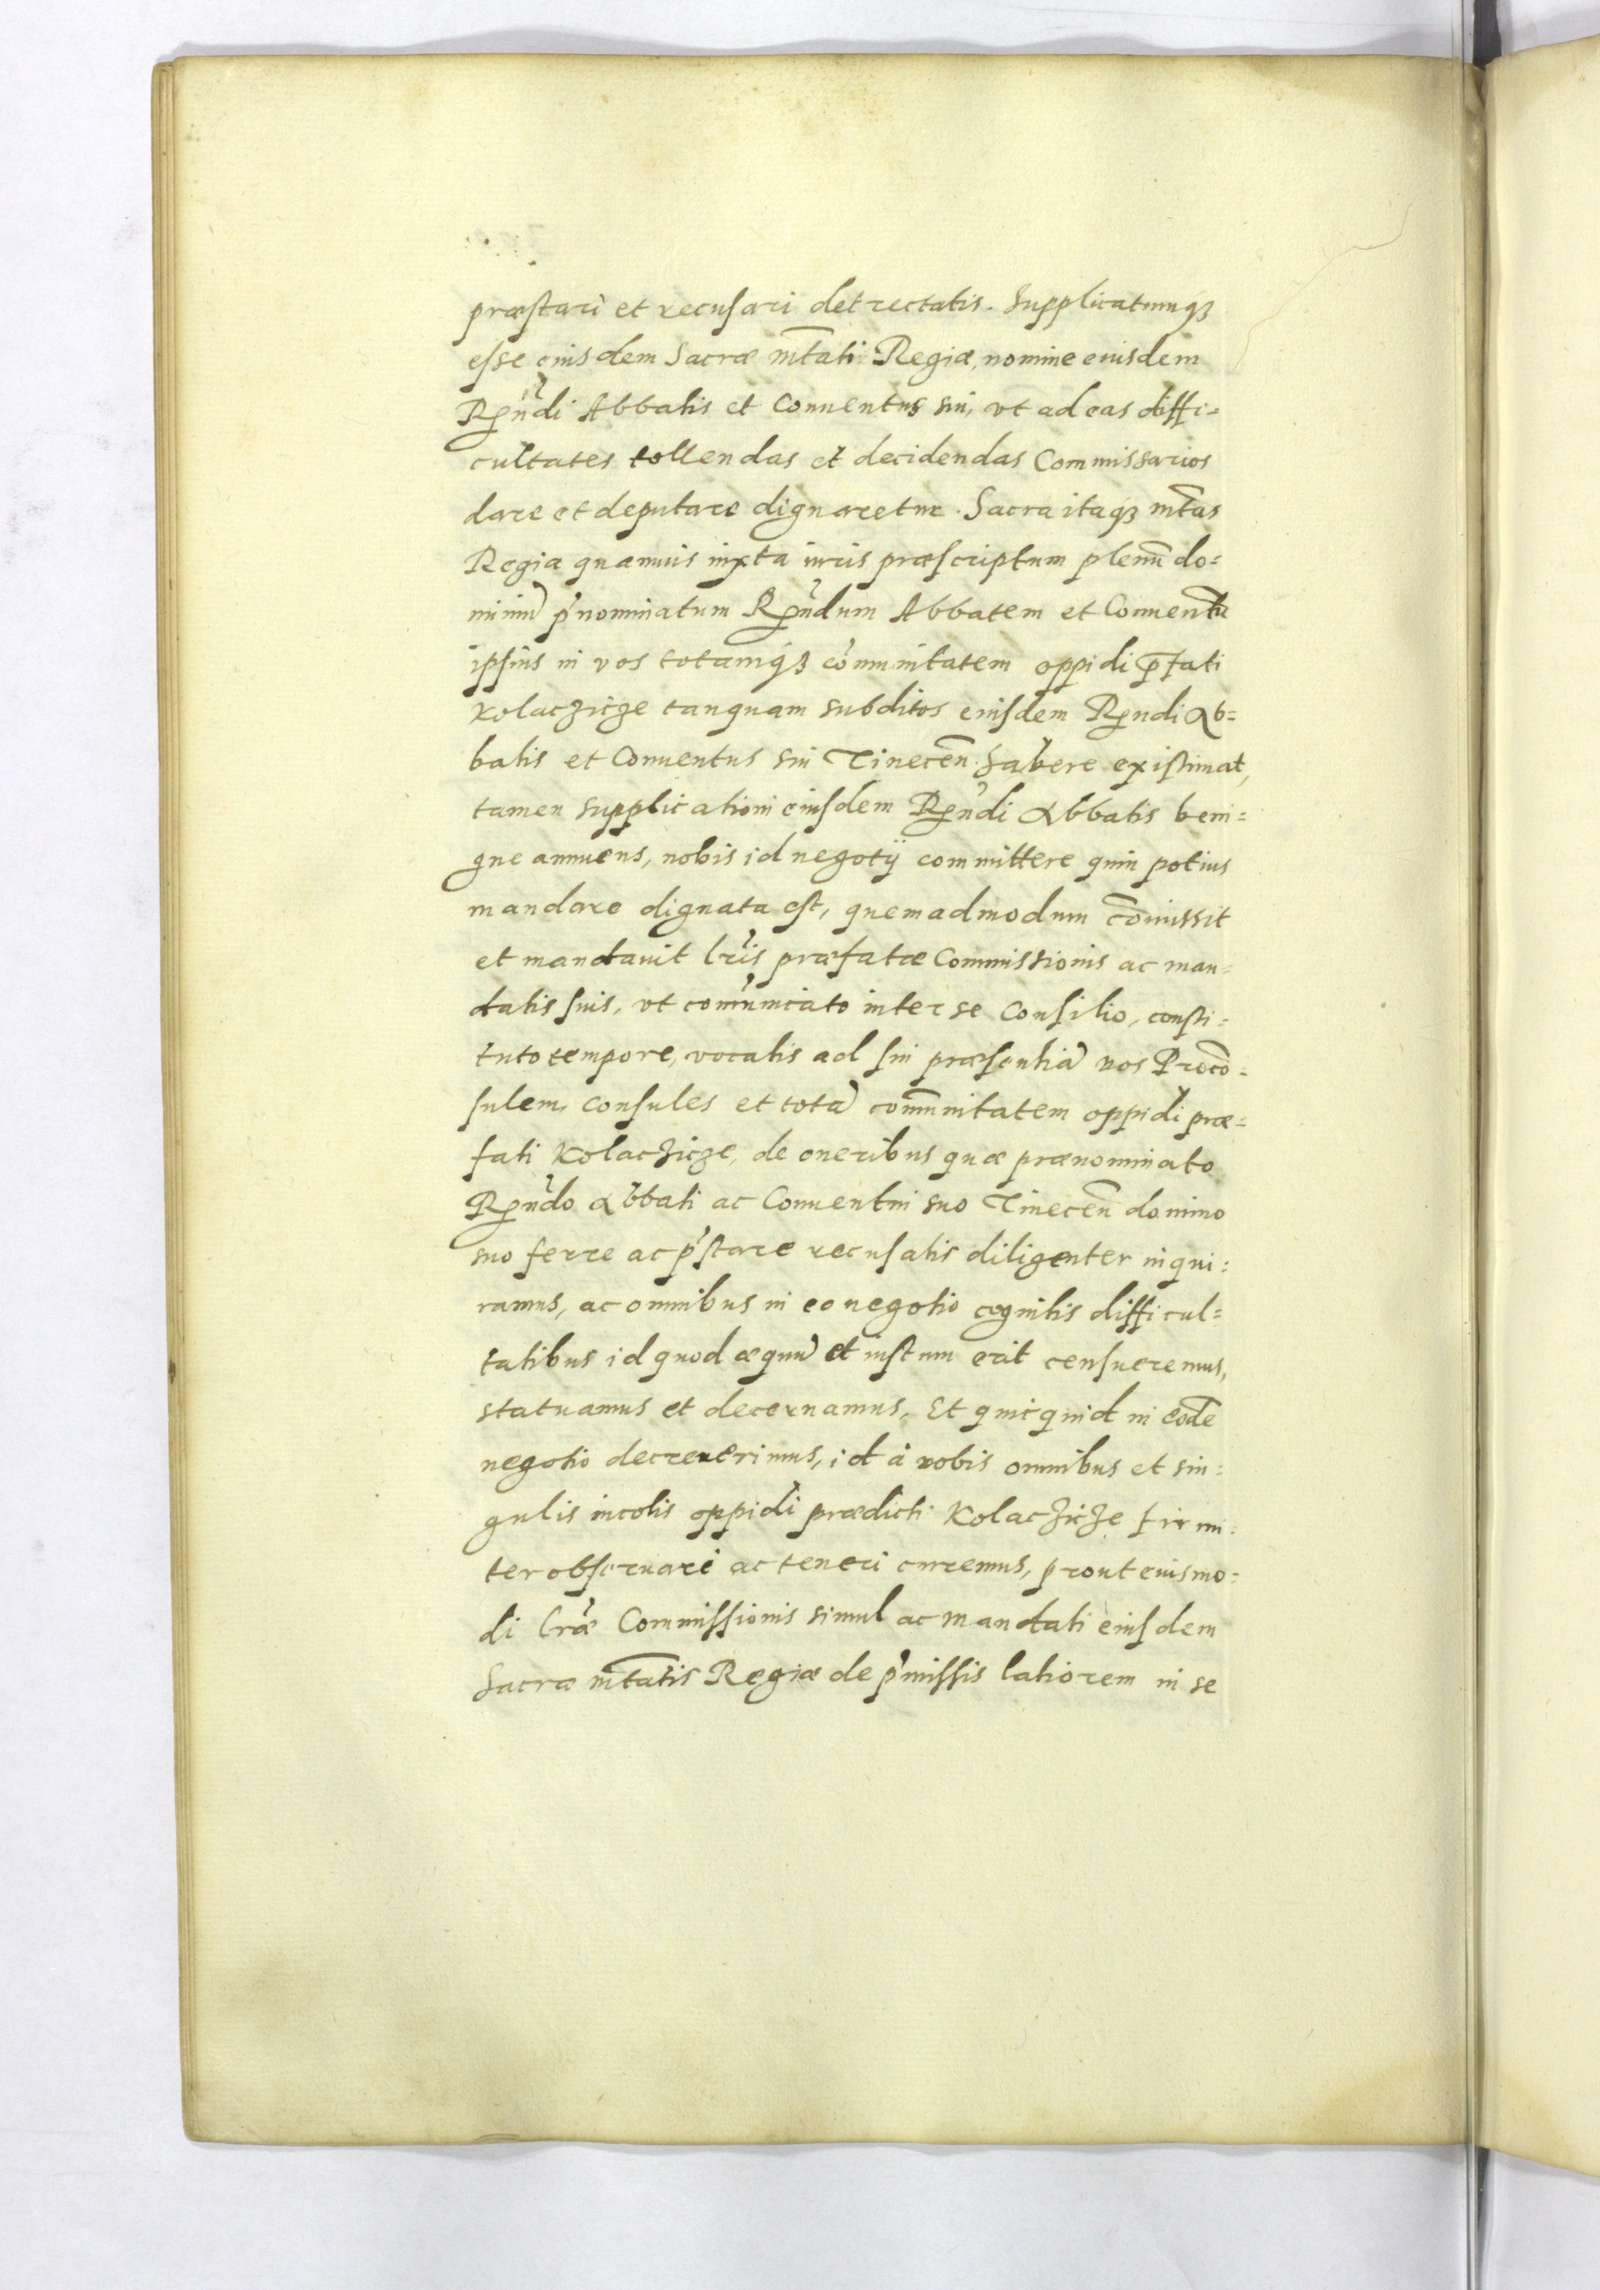 præstari et recusari detrectatis. Supplicatumqȝ
esse eiusdem Sacræ mtati Regiæ, nomine eiusdem
Rendi Abbatis et Conuentus sui, vt ad eas diffi=
cultates tollendas et decidendas Commissarios
dare et deputare dignaretur. Sacra itaqȝ mtas
Regia quamuis iuxta iuris præscriptum plenū do=
miniū p̃nominatum Rendum Abbatem et Conuentū
ipsius in vos totamqȝ cõmunitatem oppidi p̃fati
Kolaczicze tanquam subditos eiusdem Rendi Ab=
batis et Conuentus sui Tinecen̄. habere existimat,
tamen supplicationi eiusdem Rendi Abbatis beni=
gne annuens, nobis id negotij committere quin potius
mandare dignata est, quemadmodum cōmissit
et mandauit lr̃is præfatæ Commissionis ac man=
datis suis, vt com̃unicato inter se Consilio, consti=
tuto tempore, vocatis ad sui præsentiā vos Procō=
sulem, Consules et totā com̄unitatem oppidi præ=
fati Kolaczicze, de oneribus quæ prænominato
Rendo Abbati ac Conuentui suo Tinecen̄ domino
suo ferre ac p̃stare recusatis diligenter inqui=
ramus, ac omnibus in eo negotio cognitis difficul=
tatibus id quod æquū et iustum erit censueremus,
statuamus et decernamus, Et quicquid in eodē
negotio decreuerimus, id à vobis omnibus et sin=
gulis incolis oppidi prædicti Kolaczicze firmi=
ter obseruari ac teneri curemus, prout eiusmo=
di lr̃æ Commissionis simul ac mandati eiusdem
Sacræ mtatis Regiæ de p̃missis latiorem in se